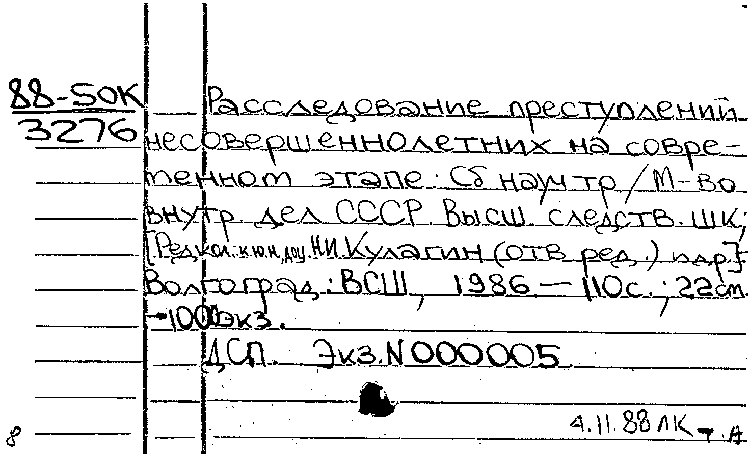 88-50К
3276
Расследование преступлений
несовершеннолетних на совре-
менном этапе: Сб науч.тр / М-во
внутр. дел СССР. Высш. следств. шк;
[Редкол.: к.ю.н, доц. Н.И. Кулагин (отв. ред.) и др.]
Волгоград: ВСШ, 1986. — 110с.; 22см.
-100экз.
ДСП. Экз. N 000005
4.11.88 ЛК т. А
8